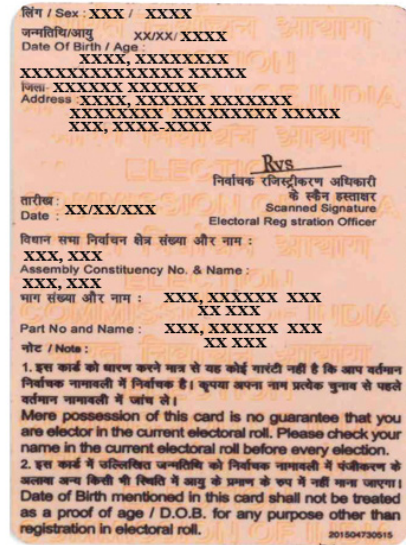 लिंग / Sex : XXX / XXXX
जन्मतिथि/आयु XX/XX/ XXXX
Date Of Birth / Age :
XXXX, XXXXXXXXX
XXXXXXXXXXXXXXX XXXXX
जिला- XXXXXXX XXXXXX
Address : XXXX, XXXXXX XXXXXXX
XXXXXXXX XXXXXXXXX XXXXX
XXX, XXXX-XXXX
Rvs
निर्वाचक रजिस्ट्रीकरण अधिकारी
के स्कैन हस्ताक्षर
तारीख :
Date : XX/XX/XXX
Scanned Signature
Electoral Reg stration Officer
विधान सभा निर्वाचन क्षेत्र संख्या और नाम :
XXX, XXX
Assembly Constituency No. & Name :
XXX, XXX
भाग संख्या और नाम : XXX, XXXXXX XXX
XX XXX
Part No and Name : XXX, XXXXXX XXX
XX XXX
नोट / Note :
1. इस कार्ड को धारण करने मात्र से यह कोई गारंटी नहीं है कि आप वर्तमान
निर्वाचक नामावली में निर्वाचक है। कृपया अपना नाम प्रत्येक चुनाव से पहले
वर्तमान नामावली में जांच ले।
Mere possession of this card is no guarantee that you
are elector in the current electoral roll. Please check your
name in the current electoral roll before every election.
2. इस कार्ड में उल्लिखित जन्मतिथि को निर्वाचक नामावली में पंजीकरण के
अलावा अन्य किसी भी स्थिति में आयु के प्रमाण के रुप में नहीं माना जाएगा।
Date of Birth mentioned in this card shall not be treated
as a proof of age / D.O.B. for any purpose other than
registration in electoral roll.
201504730515